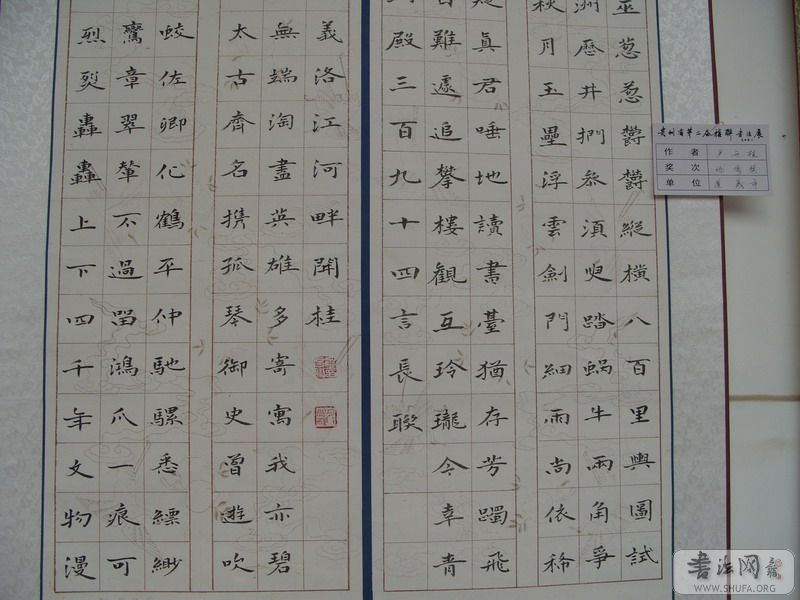 巫葱葱鬱鬱縱橫八百里輿圖試
洲歷井捫參須臾踏蝸牛兩角爭
秋月玉壘浮雲劍門細雨尚依稀
真君唾地讀書臺猶存芳躅飛
難遽追攀樓觀互玲瓏今幸青
殿三百九十四言長聯
義洛江河畔開桂
無端淘盡英雄多寄寓我亦碧
太古齊名攜孤琴御史曾遊吹
蛟佐卿化鶴平仲馳騾悉縹緲
鸞章翠輦不過留鴻爪一痕可
烈烈轟轟上下四千年文物漫
贵州省第二届楹联书法展
作者
奖次 优秀奖
单位 遵义市
书法网
WWW.SHUFA.ORG